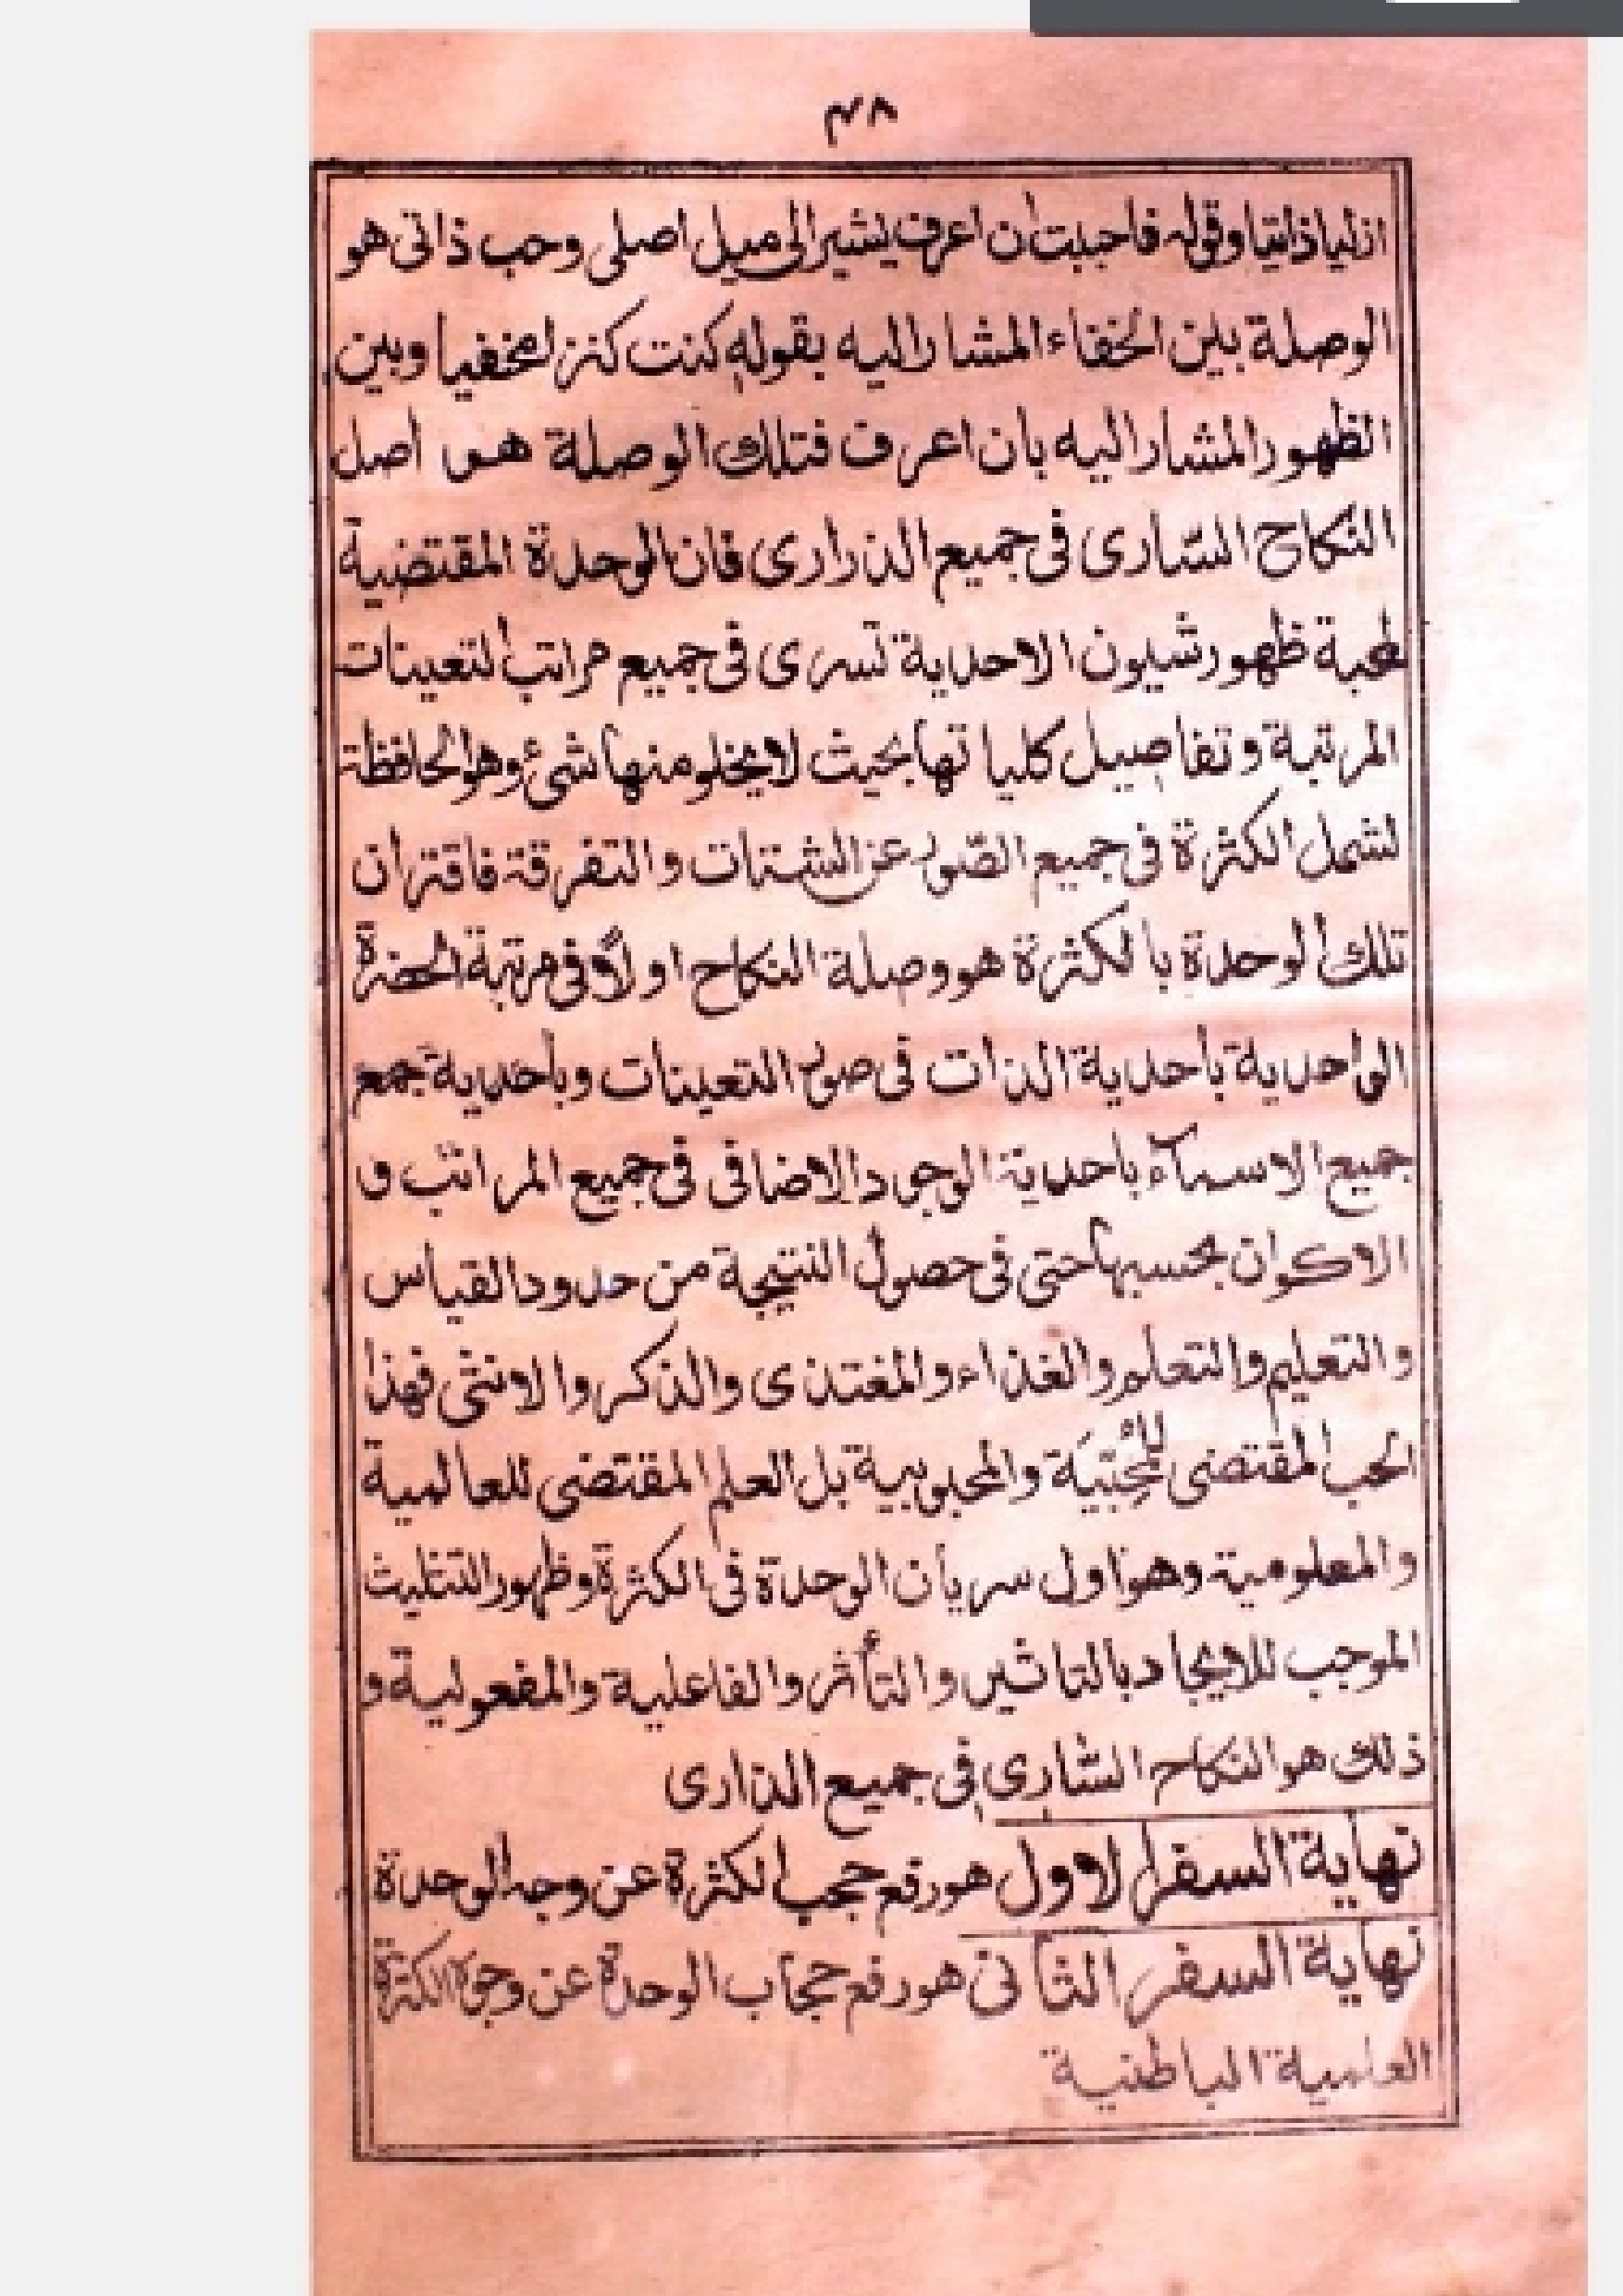 ٤٨
ازليا ذاتيا وقوله فاحببت ان اعرف يشير الى ميل اصلى وحب ذاتى هو
الوصلة بين الخفاء المشار اليه بقوله كنت كنزا مخفيا وبين
الظهور المشار اليه بان اعرف فتلك الوصلة هى اصل
النكاح السّارى فى جميع الذرارى فان الوحدة المقتضية
لمحبة ظهور شيون الاحدية تسرى فى جميع مراتب التعينات
المرتبة وتفاصيل كلياتها بحيث لا يخلو منها شئ وهو الحافظة
لشمل الكثرة فى جميع الصّور عن الشتات والتفرقة فاقتران
تلك الوحدة بالكثرة هو وصلة النكاح اولاً فى مرتبة الحضرة
الواحدية باحدية الذات فى صور التعينات وباحدية جمع
جميع الاسمآء باحدية الوجود الاضافى فى جميع المراتب و
الاكوان بحسبها حتى فى حصول النتيجة من حدود القياس
والتعليم والتعلم والغذاء والمغتذى والذكر والانثى فهذا
الحب المقتضى للمُحِبّيَة والمحبوبية بل العلم المقتضى للعالمية
والمعلومية وهو اول سريان الوحدة فى الكثرة وظهور التثليث
الموجب للايجاد بالتاثير والتأثر والفاعلية والمفعولية و
ذلك هو النكاح السّارى فى جميع الذرارى
نهاية السفر الاول هو رفع حجب الكثرة عن وجه الوحدة
نهاية السفر الثانى هو رفع حجاب الوحدة عن وجوه الكثرة
العلمية الباطنية